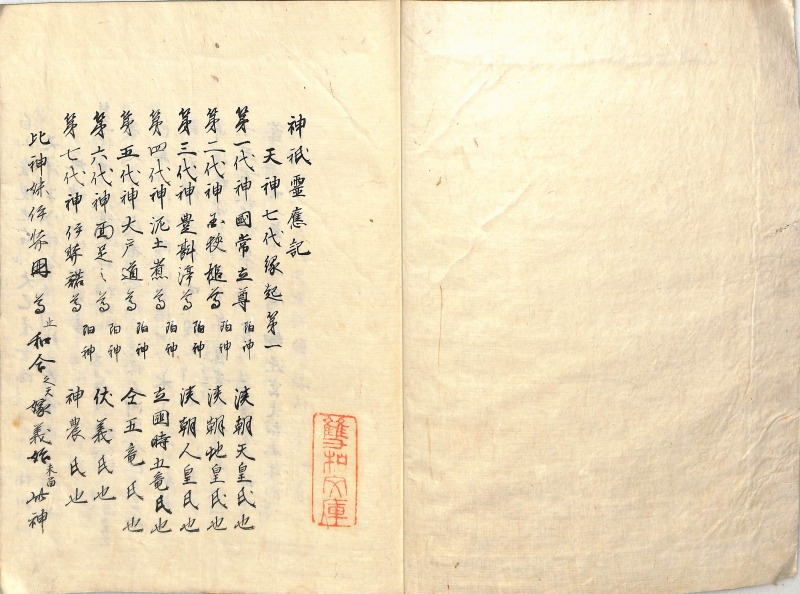 神祇靈應記
天神七代縁起第一
第一代神國常立尊 陽神 漢朝天皇氏也
第二代神 狭槌尊 陽神 漢朝地皇氏也
第三代神豊斟渟尊 陽神 漢朝人皇氏也
第四代神泥土煮尊 陽神 立 時五竜氏也
第五代神大戸道尊 陽神 仝五竜氏也
第六代神面足之尊 陽神 伏義氏也
第七代神伊弉諾尊 陽神 神農氏也
比神妹伊弉冊尊 和合 嫁義始 此神
雙和文庫